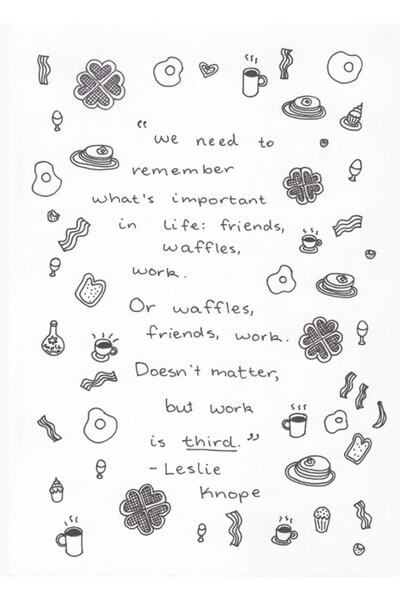 "we need to
remember
what's important
in life: friends,
waffles,
work.
Or waffles,
friends, work.
Doesn't matter,
but work
is third."
- Leslie
Knope